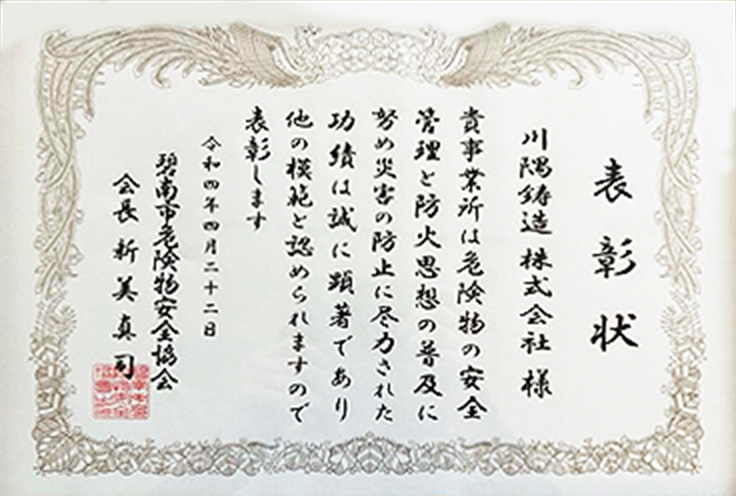 表彰状
川隅鋳造株式会社様
貴事業所は危険物の安全
管理と防火思想の普及に
努め災害の防止に尽力された
功績は誠に顕著であり
他の模範と認められますので
表彰します
令和四年四月二十二日
碧南市危険物安全協会
会長新美真司